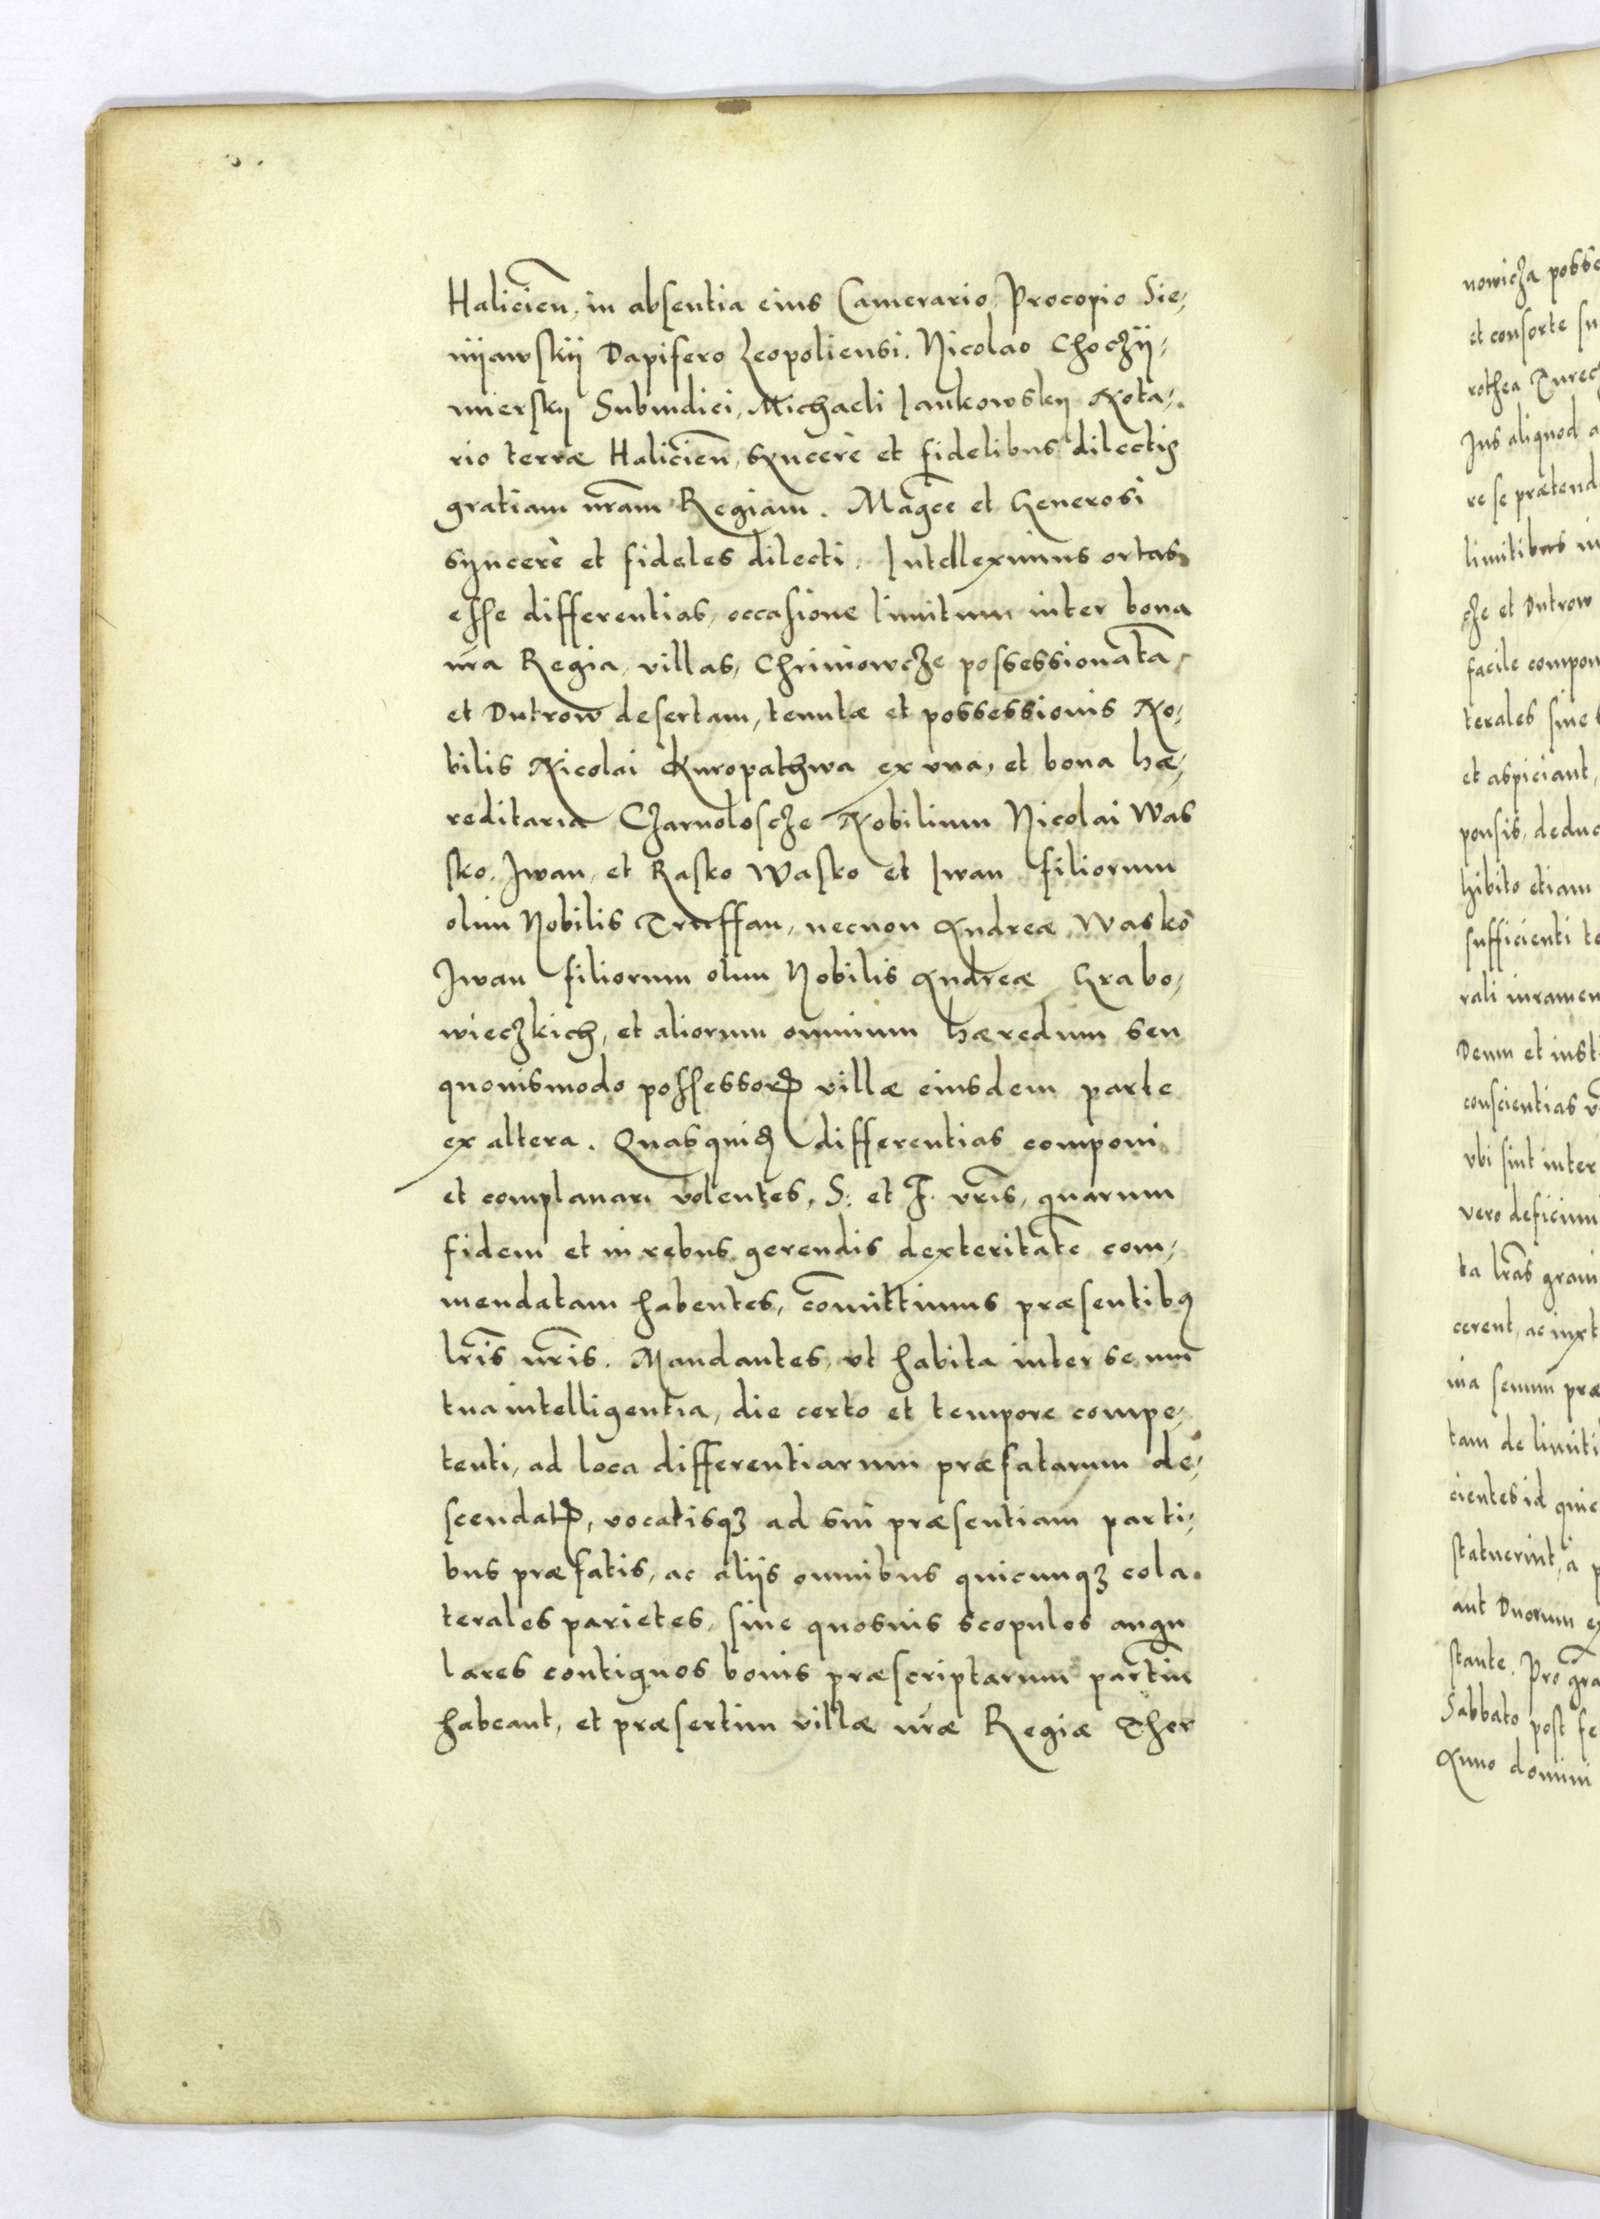 Halicien̄, in absentia eius Camerario, Procopio Sie,
nijawskij Dapifero Leopoliensi. Nicolao Choczij,
mierskij Subiudici, Michaeli Iankowskij Nota,
rio terræ Halicien̄, syncerè et fidelibus dilectis
gratiam nr̄am Regiam. Magcē et Generosi
syncerè et fideles dilecti. Intelleximus ortas
esse differentias, occasione limitum inter bona
nr̄a Regia, villas, Chriniowcze possessionatā
et Dutrow desertam, tenutæ et possessionis No,
bilis Nicolai Kuropathwa ex vna, et bona hæ,
reditaria Czarnoloscze Nobilium Nicolai Was
sko, Iwan, et Rasko Wasko et Iwan filiorum
olim Nobilis, necnon Andreæ Wasko
Iwan filiorum olim Nobilis Andreæ Grabo,
wieczkich, et aliorum omnium hæredum seu
quouismodo possessorꝝ villæ eiusdem parte
ex altera. Quasquidē differentias componi
et complanari volentes, S. et F. vr̄is, quarum
fidem et in rebus gerendis dexteritatē com,
mendatam habentes, com̄ittimus præsentibꝰ
lr̄is nr̄is. Mandantes, vt habita inter se mu
tua intelligentia, die certo et tempore compe,
tenti, ad loca differentiarum præfatarum de,
scendatꝭ, vocatisqꝫ ad sui præsentiam parti,
bus præfatis, ac alijs omnibus quicunqꝫ cola
terales parietes, siue quosuis scopulos angu
lares contiguos bonis præscriptarum partiū
habeant, et præsertim villæ nr̄æ Regiæ Ther
nowicza posse
et consorte su
rothea Turec
Ius aliquod a
re se prætend
limitibus in
cze et Dutrow
facile compon
terales siue
et aspiciant,
ponsis, deduc
hibito etiam
sufficienti te
rali iuramen
Deum et iust
conscientias v
vbi sint inter
vero deficiun
ta lr̄as grani
cerent, ac iuxt
nia senum præ
tam de limiti
cientes id quic
statuerint, a p
aut Duorum ex
stante. Pro gr̄a
Sabbato post fe
Anno domini